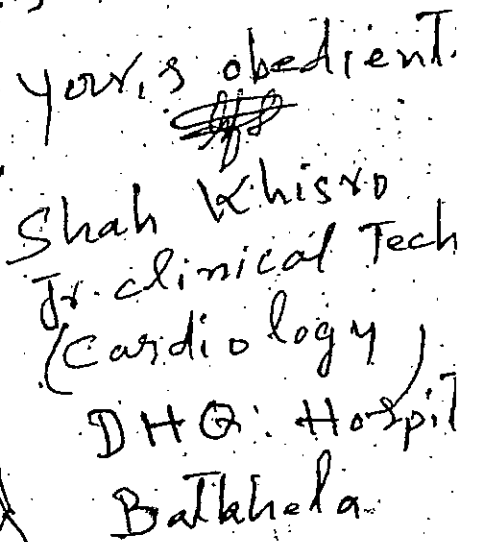 Your,s obedient.
Shah Khisro
Jr. clinical Tech
(Cardiology)
DHQ: Hospil
Batkhela